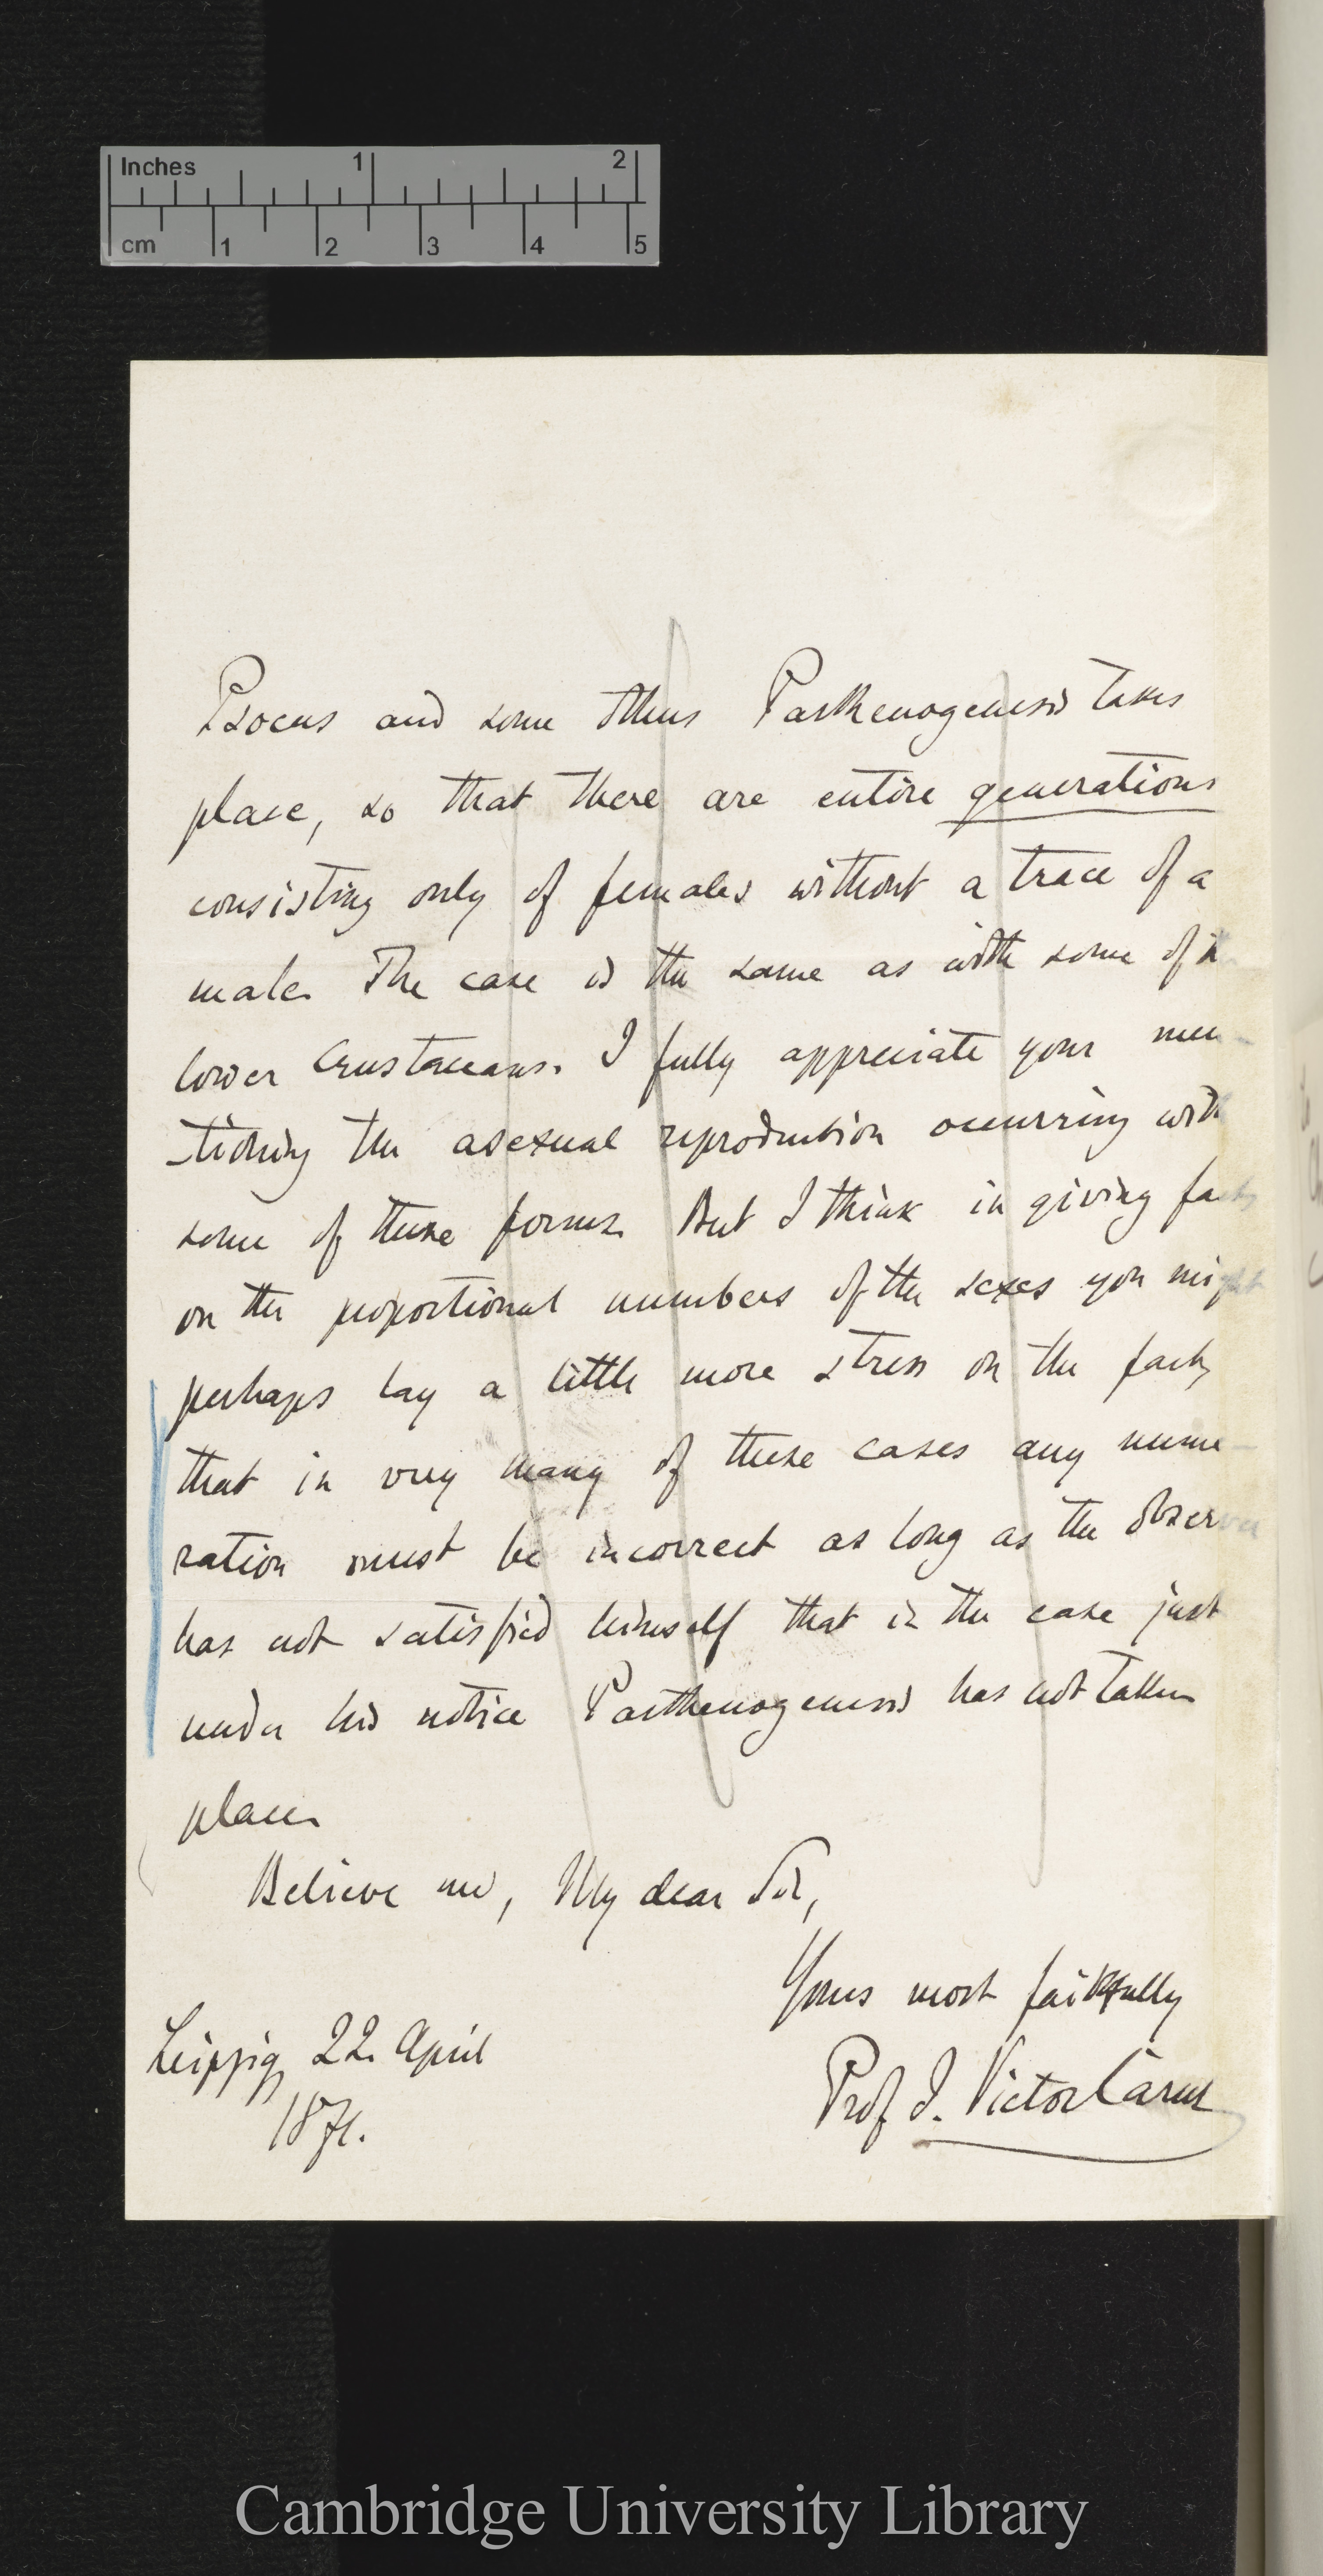 Inches 1 2
cm 1 2 3 4 5
Psocus and some others Parthenogenesis takes
place, so that there are entire generations
consisting only of females without a trace of a
male. The case is the same as with some of the
lower Crustaceans. I fully appreciate your men-
-tioning the asexual reproduction occurring with
some of these forms. But I think in giving facts
on the proportional numbers of the sexes you might
perhaps lay a little more stress on the fact,
that in very many of these cases any nume-
ration must be incorrect as long as the observer
has not satisfied himself that in the case just
under his notice Parthenogenesis has not taken
place.
Believe me, My dear Sir,
Yours most faithfully
Prof. J. Victor Carus
Leipzig, 22. April
1871.
Cambridge University Library